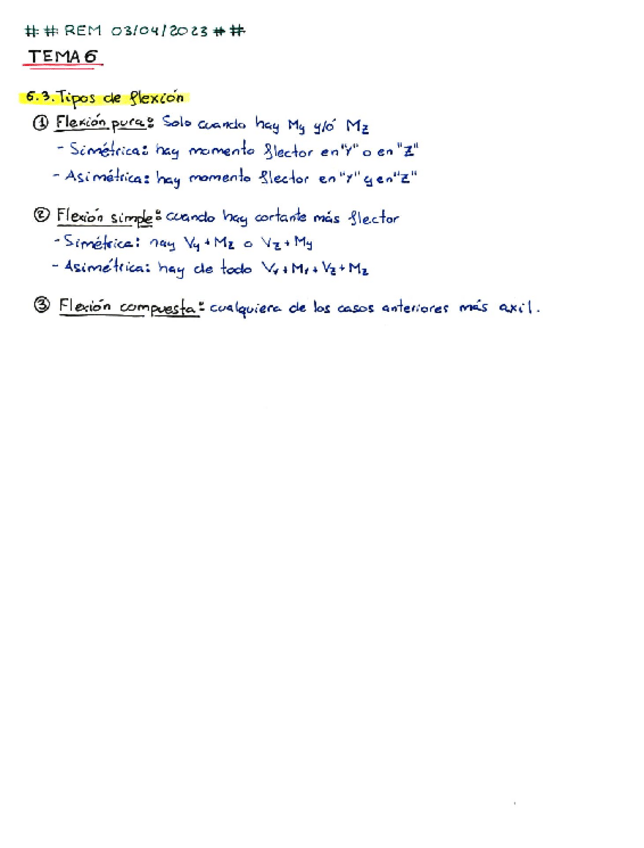 ## REM 03/04/2023 ##
TEMA 6
6.3. Tipos de flexión
① Flexión pura: Solo cuando hay My y/ó Mz
- Simétrica: hay momento flector en "Y" o en "Z"
- Asimétrica: hay momento flector en "Y" y en "Z"
② Flexión simple: cuando hay cortante más flector
- Simétrica: hay Vy + Mz o Vz + My
- Asimétrica: hay de todo Vy + My + Vz + Mz
③ Flexión compuesta: cualquiera de los casos anteriores más axil.